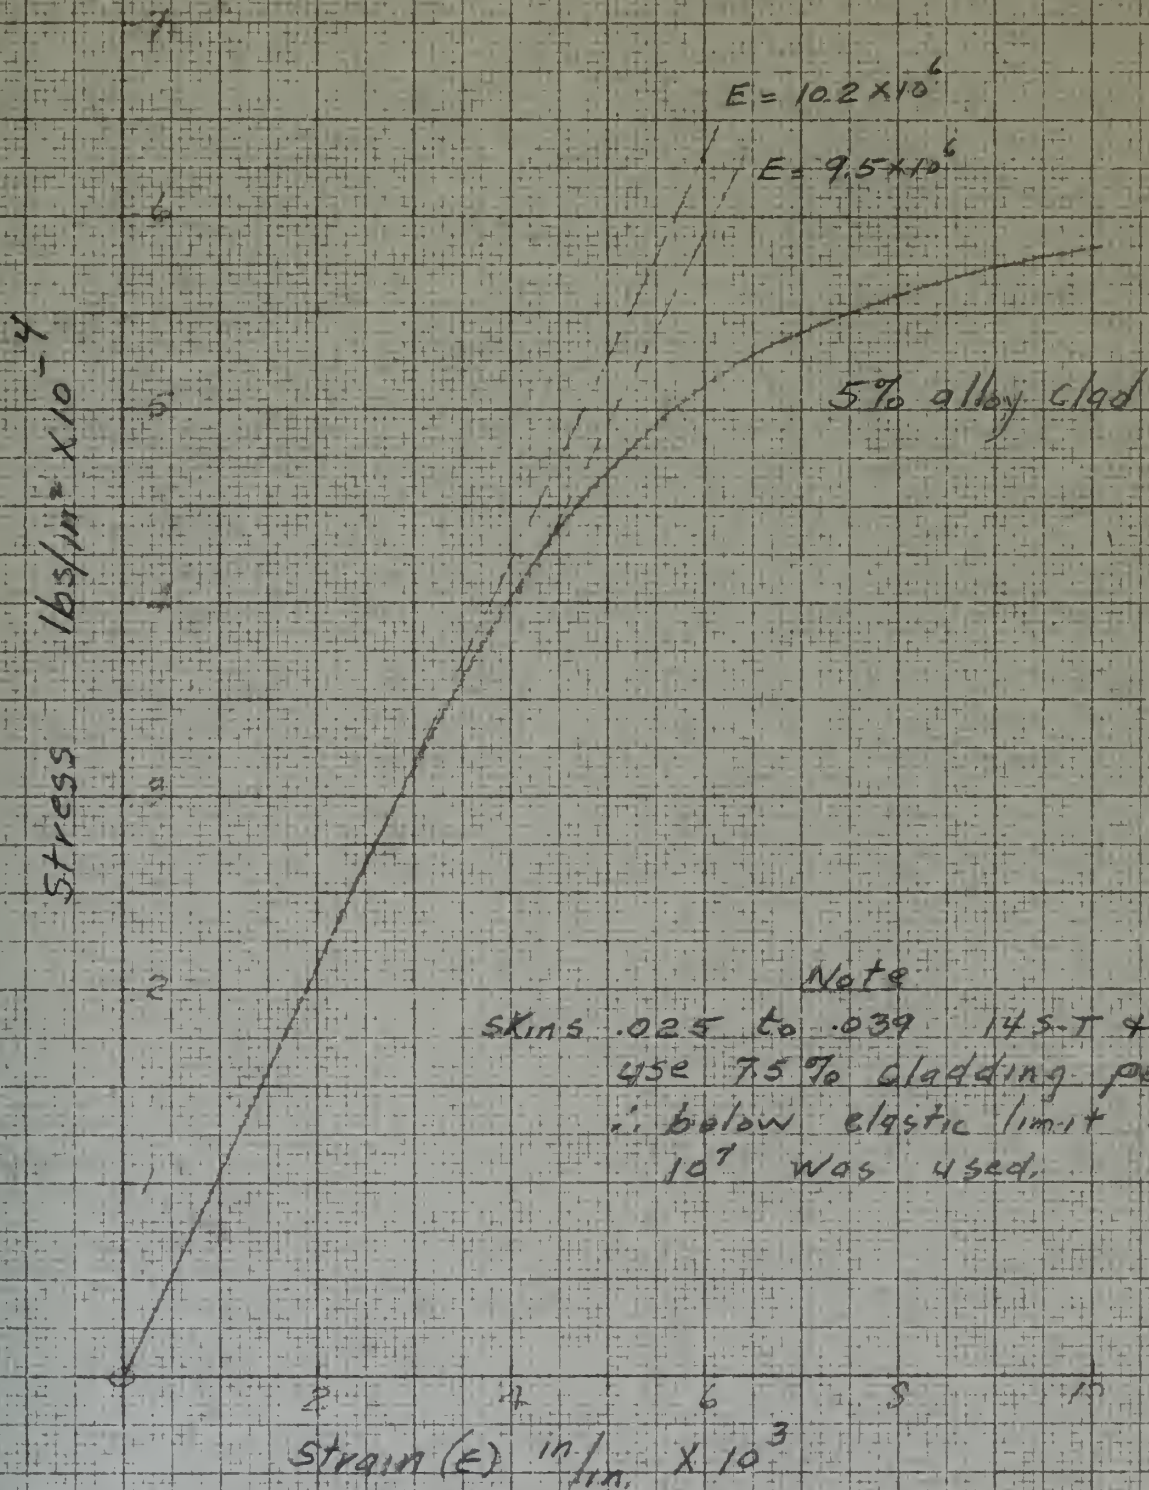 7
E = 10.2 × 10⁶
E = 9.5 × 10⁶
6
5% alloy clad
5
4
3
2
1
Stress lbs/in² × 10⁻⁴
Note
skins .025 to .039 14S-T
use 7.5% cladding
∴ below elastic limit
10⁷ was used.
2 4 6 8 10
Strain (ε) in/in. × 10³